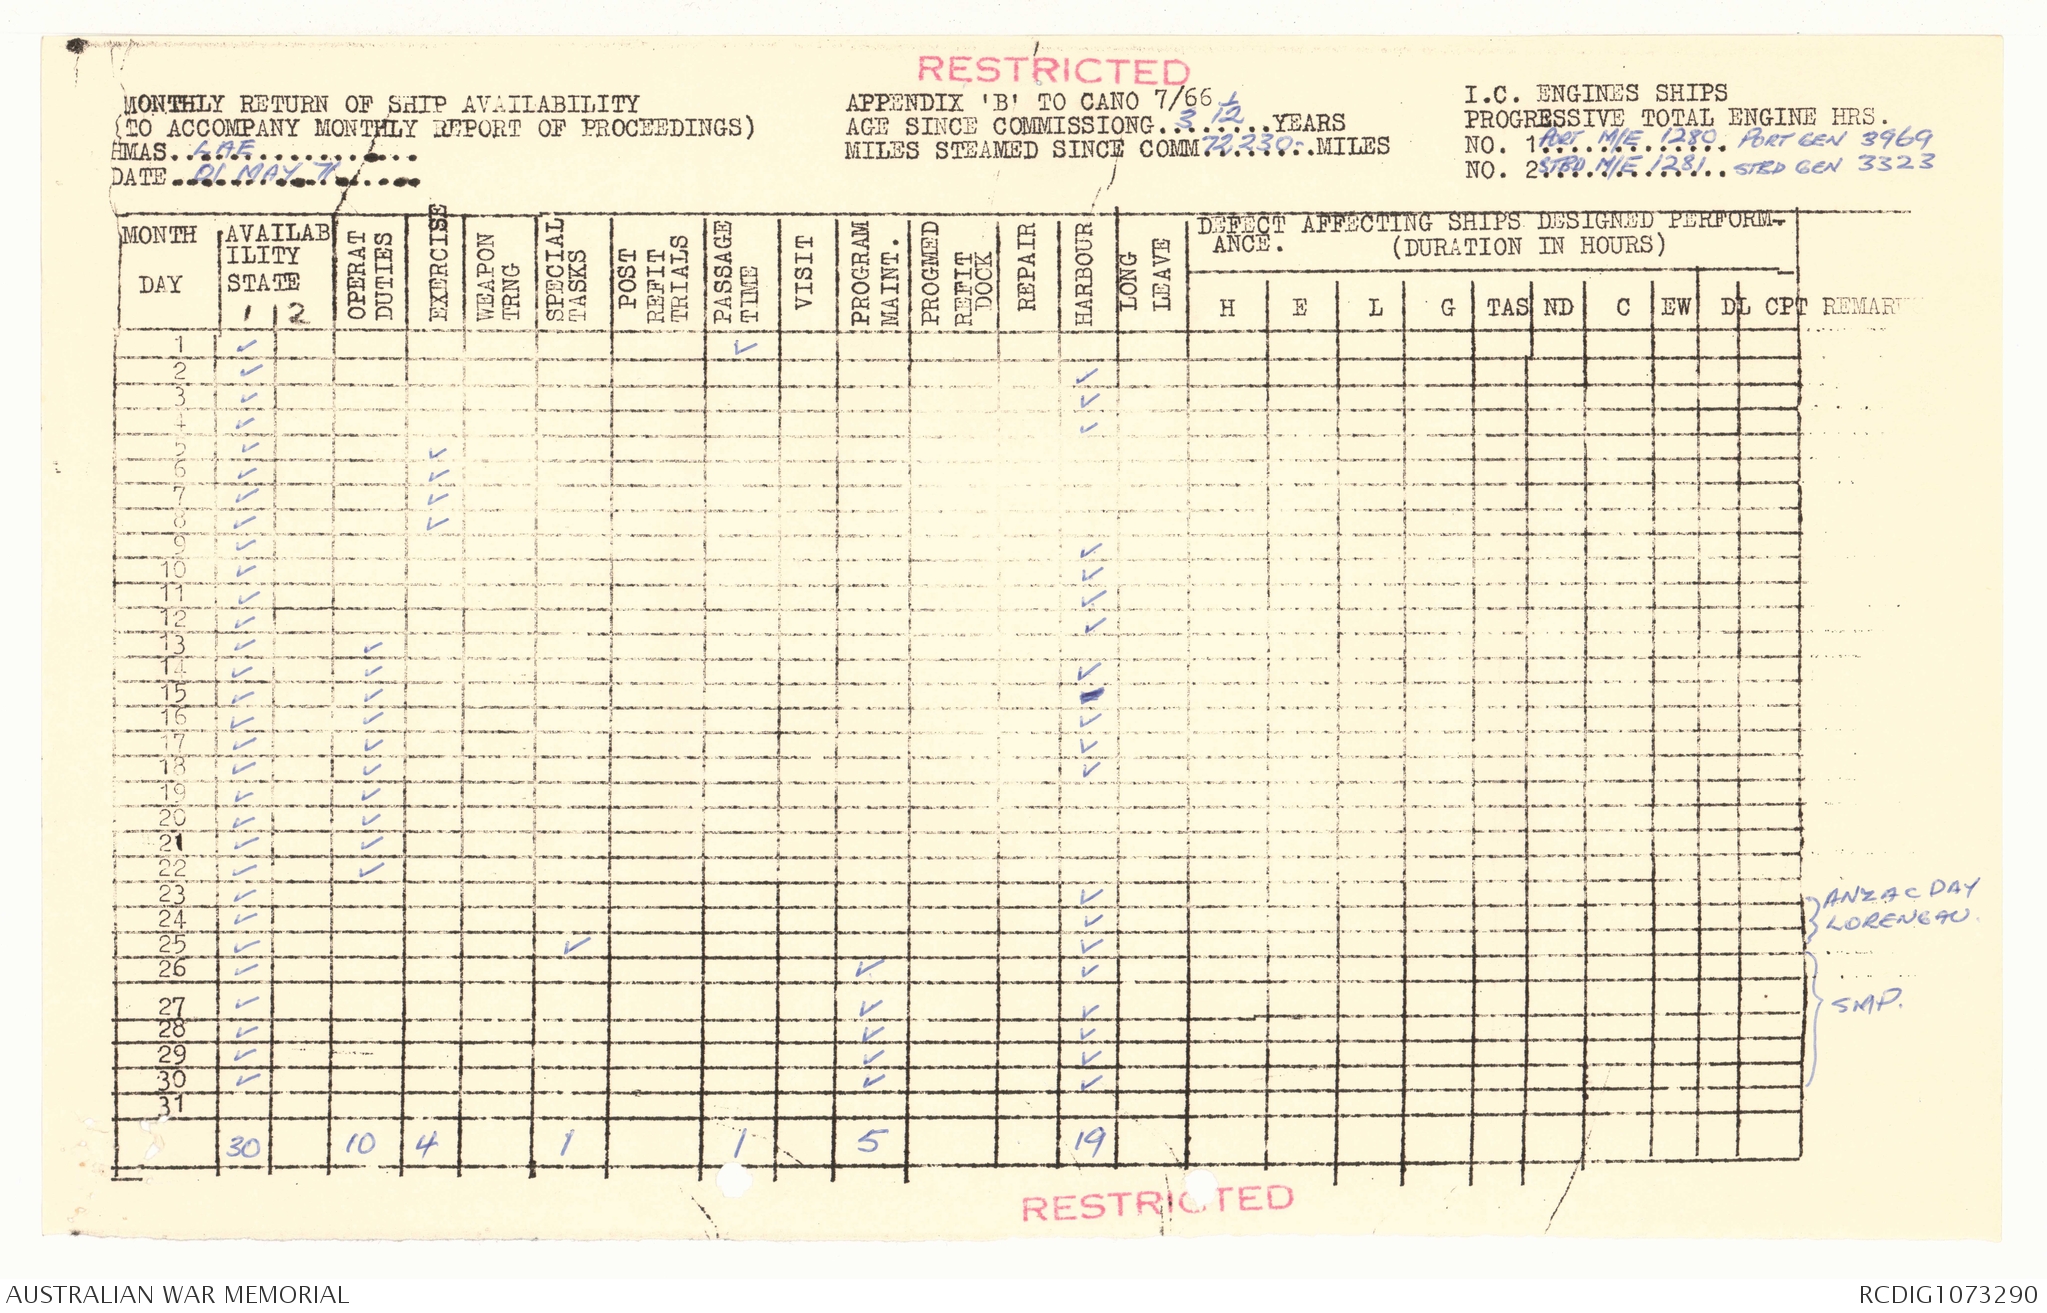 RESTRICTED
MONTHLY RETURN OF SHIP AVAILABILITY
(TO ACCOMPANY MONTHLY REPORT OF PROCEEDINGS)
HMAS..LAE..................
DATE..01 MAY 71..................
APPENDIX 'B' TO CANO 7/66
AGE SINCE COMMISSIONG..3 1/12........YEARS
MILES STEAMED SINCE COMM 72230-..MILES
I.C. ENGINES SHIPS
PROGRESSIVE TOTAL ENGINE HRS.
NO. 1 PORT M/E 1280. PORT GEN 3969
NO. 2 STBD M/E 1281. STBD GEN 3323
MONTH DAY
AVAILAB ILITY STATE
1 2
OPERAT DUTIES
EXERCISE
WEAPON TRNG
SPECIAL TASKS
POST REFIT TRIALS
PASSAGE TIME
VISIT
PROGRAM MAINT.
PROGMED REFIT DOCK
REPAIR
HARBOUR
LONG LEAVE
DEFECT AFFECTING SHIPS DESIGNED PERFORM-
ANCE. (DURATION IN HOURS)
H E L G TAS ND C EW DL CPT REMAR
1 ✓ ✓
2 ✓ ✓
3 ✓ ✓
4 ✓ ✓
5 ✓ ✓
6 ✓ ✓
7 ✓ ✓
8 ✓ ✓
9 ✓ ✓
10 ✓ ✓
11 ✓ ✓
12 ✓ ✓
13 ✓ ✓
14 ✓ ✓ ✓
15 ✓ ✓
16 ✓ ✓ ✓
17 ✓ ✓ ✓
18 ✓ ✓ ✓
19 ✓ ✓
20 ✓ ✓
21 ✓ ✓
22 ✓ ✓
23 ✓ ✓ ANZAC DAY
24 ✓ ✓ LORENGAU.
25 ✓ ✓ ✓
26 ✓ ✓ ✓
27 ✓ ✓ ✓ SMP.
28 ✓ ✓ ✓
29 ✓ ✓ ✓
30 ✓ ✓ ✓
31
30 10 4 1 1 5 19
RESTRICTED
AUSTRALIAN WAR MEMORIAL
RCDIG1073290